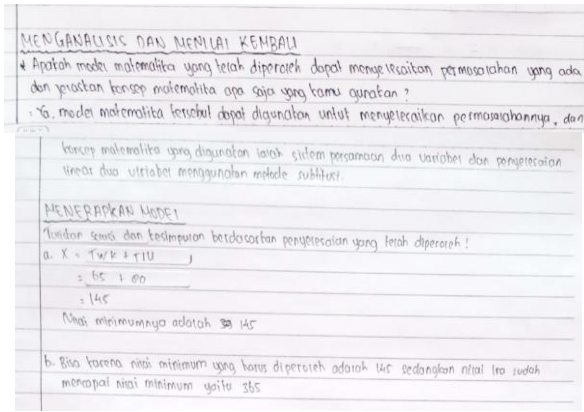 MENGANALISIS DAN MENILAI KEMBALI
* Apakah model matematika yang telah diperoleh dapat menyelesaikan permasalahan yang ada
dan jelaskan konsep matematika apa saja yang kamu gunakan ?
Ya, model matematika tersebut dapat digunakan untuk menyelesaikan permasalahannya, dan
konsep matematika yang digunakan ialah sistem persamaan dua variabel dan penyelesaian
linear dua variabel menggunakan metode subtitusi.
MENERAPKAN MODEL
Tuliskan dan kesimpulan berdasarkan penyelesaian yang telah diperoleh !
a. X = TWK + TIU
= 65 + 80
= 145
Nilai minimumnya adalah 145
b. Bisa karena nilai minimum yang harus diperoleh adalah 145 sedangkan nilai Ira sudah
mencapai nilai minimum yaitu 365